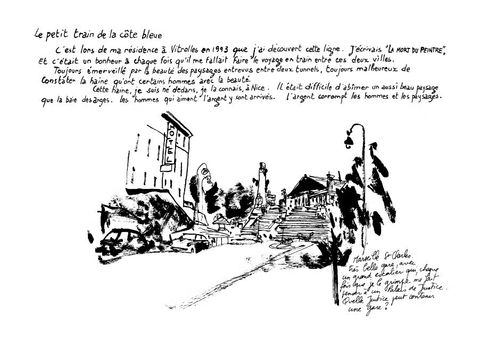 Le petit train de la côte bleue
C'est lors de ma résidence à Vitrolles en 1993 que j'ai découvert cette ligne. J'écrivais "LA MORT DU PEINTRE",
Et c'était un bonheur à chaque fois qu'il me fallait faire le voyage en train entre ces deux villes.
Toujours émerveillé par la beauté des paysages entrevus entre deux tunnels, toujours malheureux de
constater la haine qu'ont certains hommes avec la beauté.
Cette haine, je suis né dedans, je la connais, à Nice. Il était difficile d'abîmer un aussi beau paysage
que la baie des anges. Les hommes qui aiment l'argent y sont arrivés. L'argent corrompt les hommes et les paysages.
HOTEL
Marseille St Charles
très belle gare, avec
un grand escalier qui chaque
fois que je le grimpe me fait
penser à un Palais de Justice.
Quelle Justice peut contenir
une Gare ?